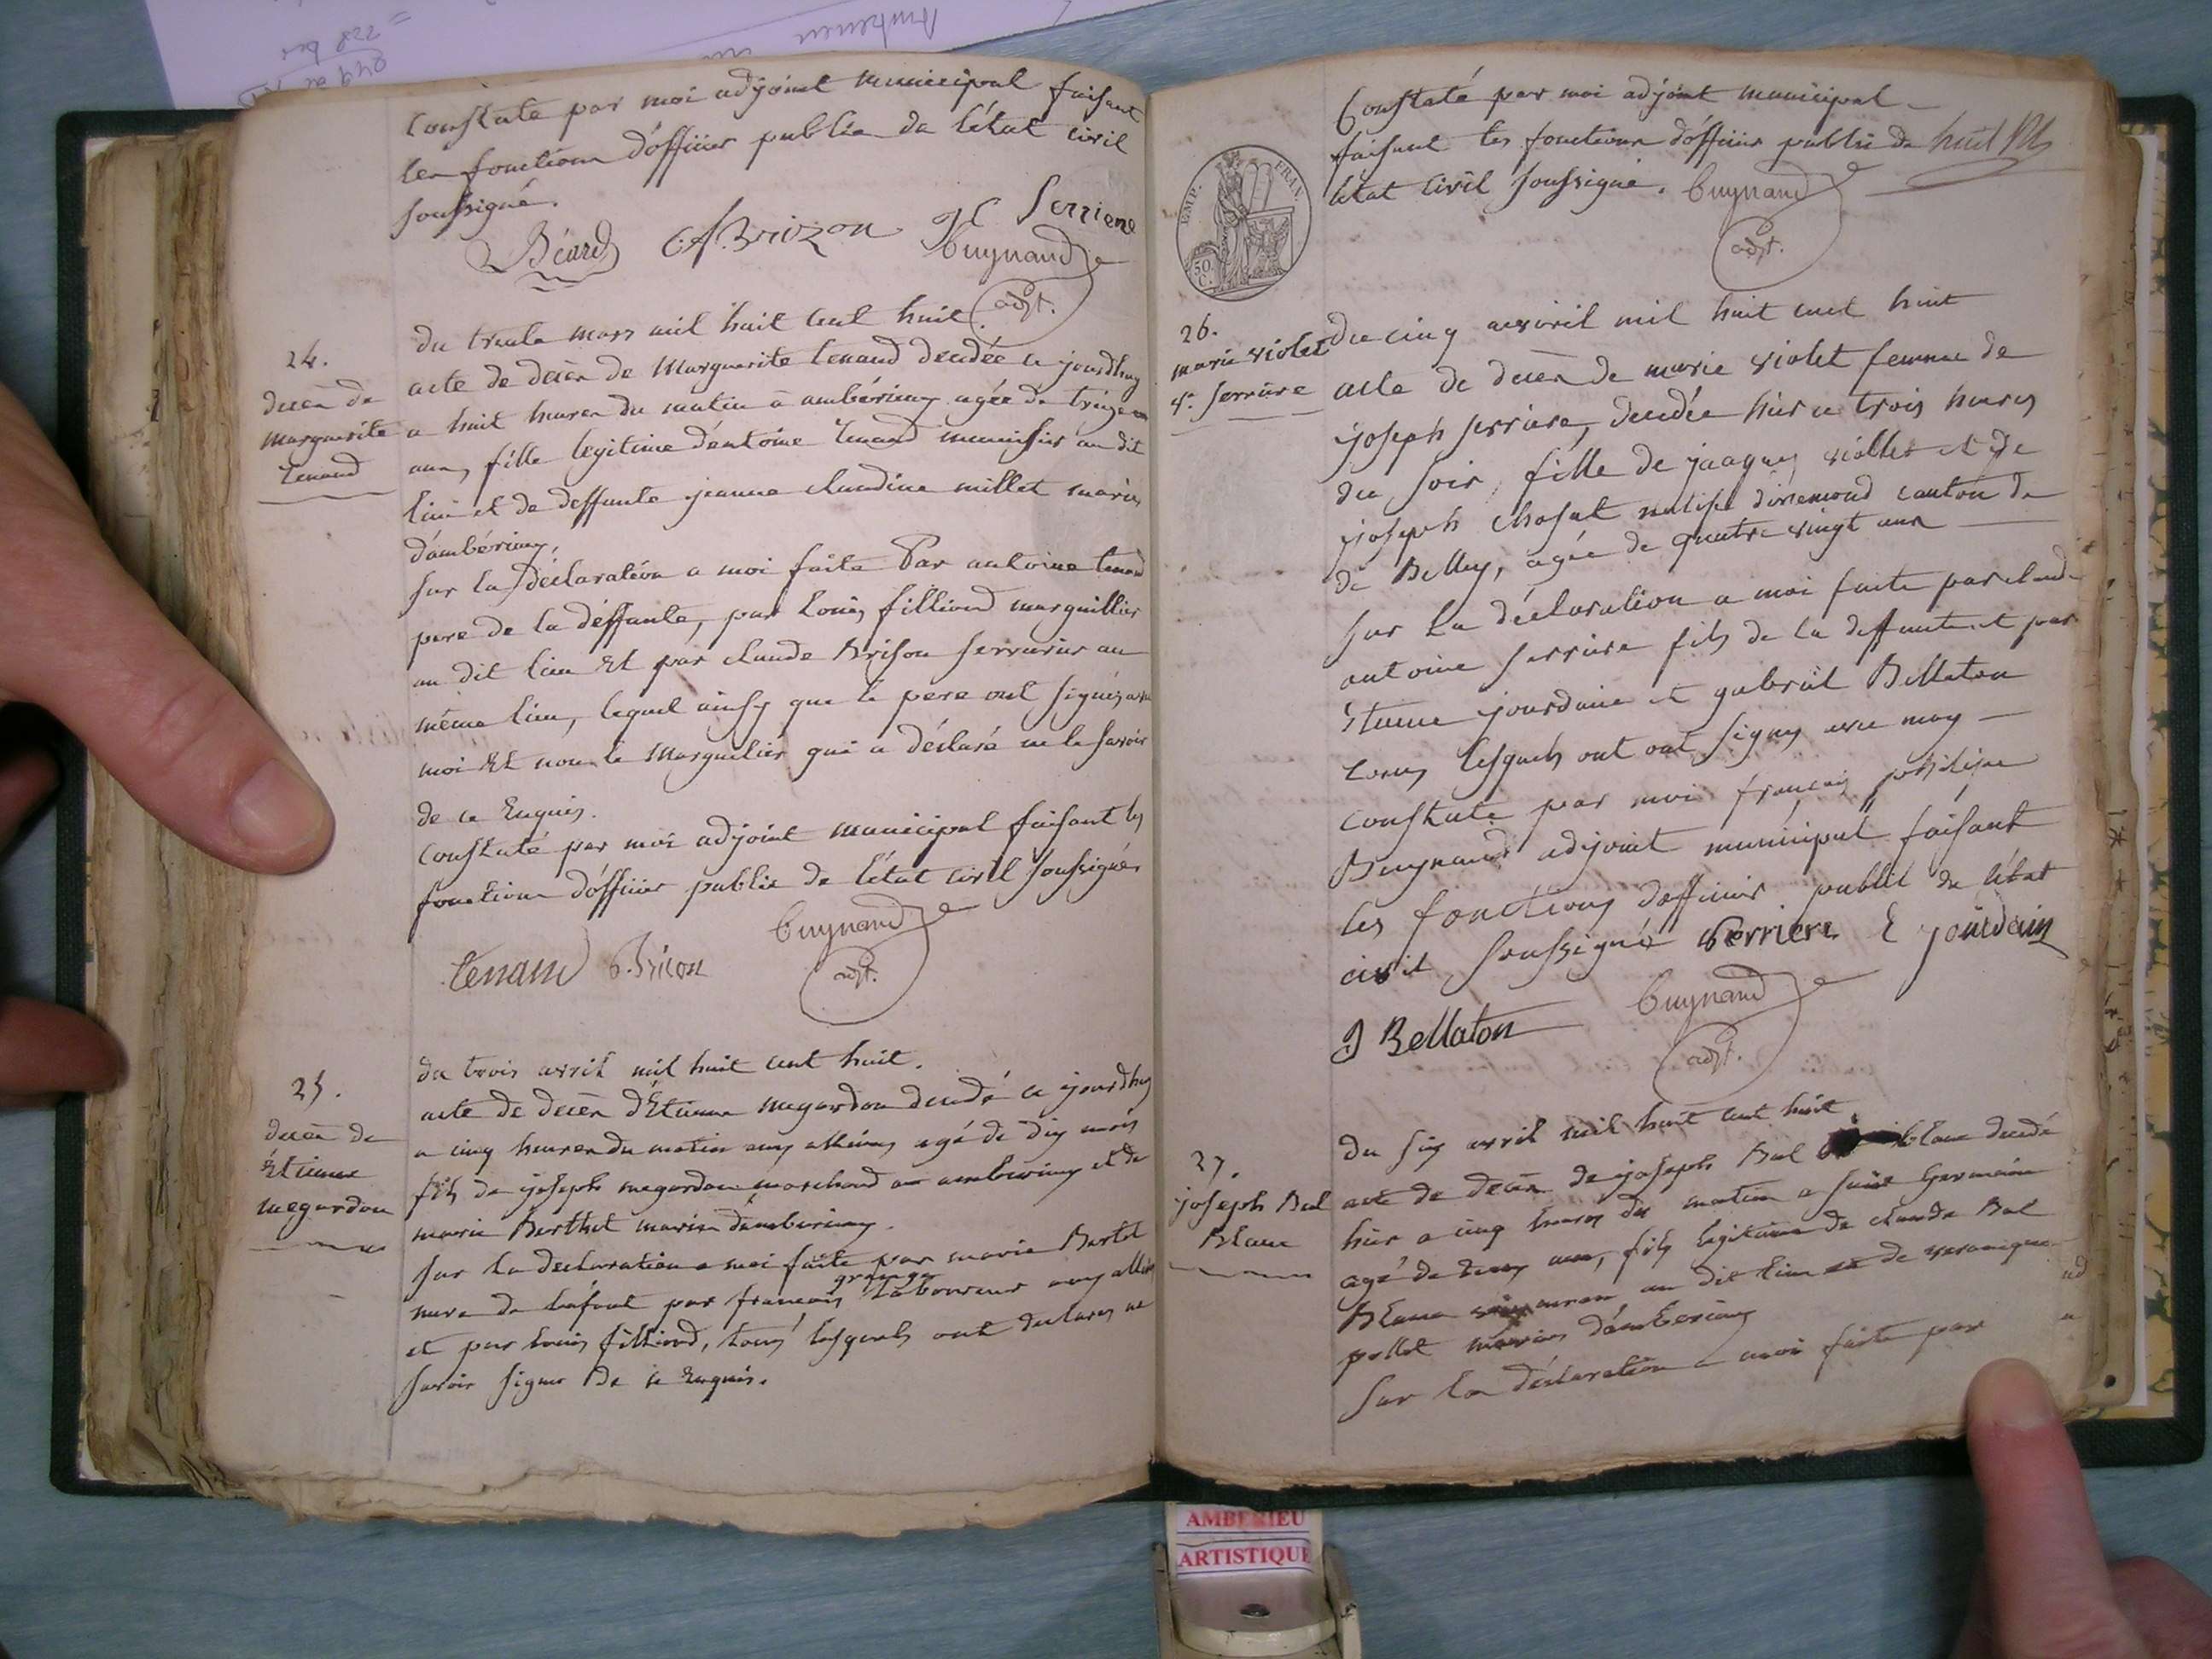 Constaté par moi adjoint municipal faisant
les fonctions d'officier public de l'état civil
soussigné.
Béard C. A. Brizon Serriere
Buynand
adjt.
24.
décès de
Marguerite
tenand
du trente mars mil huit cent huit.
acte de décès de Marguerite tenand decédée ce jourdhuy
a huit heures du matin a ambérieux agée de treize
ans, fille legitime d'antoine tenand menuisier au dit
lieu et de deffunte jeanne claudine millet mariés
d'ambérieux,
sur la déclaration a moi faite Par antoine tenand
pere de la deffunte, par Louis filliond marguillier
au dit lieu Et par claude Brison serrurier au
même lieu, lequel ainsy que le pere ont signés avec
moi Et non le Marguelier qui a déclaré ne le savoir
de ce Enquis.
Constaté par moi adjoint municipal faisant les
fonctions d'officier public de l'état civil soussigné.
tenand C. Bricon Buynand
adjt.
25.
décès de
Étienne
megardon
du trois avril mil huit cent huit.
acte de décès d'Étienne megardon decedé ce jourdhuy
a cinq heures du matin aux allimes agé de dix mois
fils de joseph megardon marchand a amberieux et de
marie Berthet mariés d'amberieux.
sur la declaration a moi faite par marie Bertet
grange
mere de l'efant par francois laboureur aux allimes
et par louis filliond, tous lesquels ont declarés ne
savoir signer De ce Enquis.
Constaté par moi adjoint municipal
faisant les fonctions d'officier public de huit
létat civil soussigné. Buynand
adjt.
EMP. FRAN.
50 C.
26.
marie violet
fe. serriere
du cinq avril mil huit cent huit
acte de décès de marie violet femme de
joseph serriere, decédée hier a trois heures
du soir, fille de jacques viollet et de
joseph chosat native d'inimond canton de
de Belley, agée de quatre vingt ans
sur la déclaration a moi faite par claude
antoine serriere fils de la deffunte et par
étienne jourdain et gabriel Bellaton
tous lesquels ont ont signés avec moy
constaté par moi françois
Buynand adjoint municipal faisant
les fonctions d'officier public de l'état
civil soussigné Serriere E jourdain
G Bellaton Buynand
adjt.
27.
joseph Bal
Blanc
du six avril mil huit cent huit.
acte de décès de joseph Bal blanc decedé
hier a cinq heures du matin a saint Germain
agé de ans, fils legitime de claude Bal
Blanc au dit lieu et de veronique
pollet mariés d'amberieux
sur la déclaration a moi faite par
AMBERIEU
ARTISTIQUE